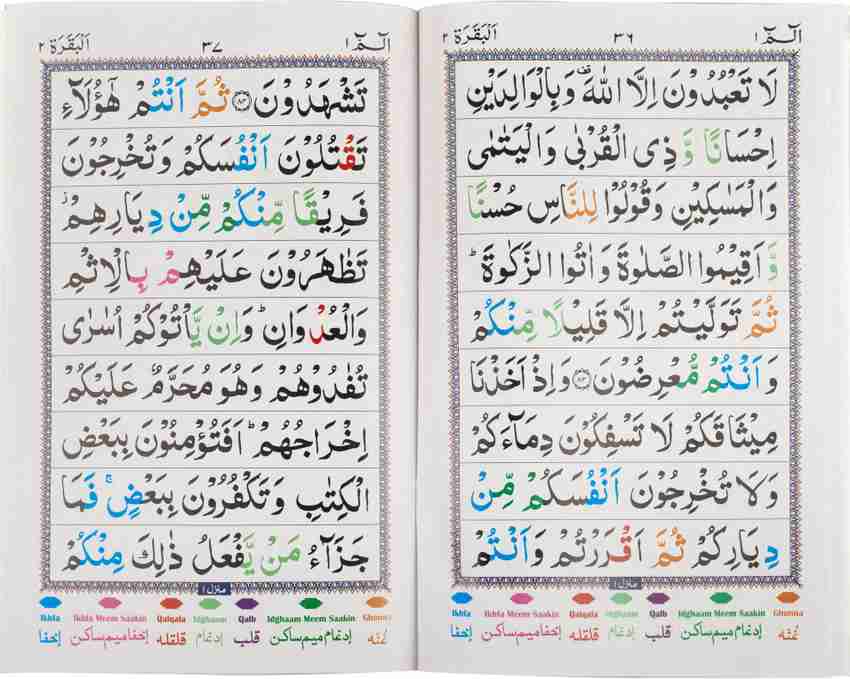 الٓمّٓ ١ ٣٦ اَلْبَقَرَة ٢
لَا تَعْبُدُوْنَ اِلَّا اللّٰهَ ۫ وَبِالْوَالِدَيْنِ
اِحْسَانًا وَّ ذِی الْقُرْبٰی وَالْيَتٰمٰی
وَالْمَسٰكِيْنِ وَقُوْلُوْا لِلنَّاسِ حُسْنًا
وَّ اَقِيْمُوا الصَّلٰوةَ وَاٰتُوا الزَّكٰوةَ ؕ
ثُمَّ تَوَلَّيْتُمْ اِلَّا قَلِيْلًا مِّنْكُمْ
وَ اَنْتُمْ مُّعْرِضُوْنَ ۝٨٣ وَاِذْ اَخَذْنَا
مِيْثَاقَكُمْ لَا تَسْفِكُوْنَ دِمَآءَكُمْ
وَلَا تُخْرِجُوْنَ اَنْفُسَكُمْ مِّنْ
دِيَارِكُمْ ثُمَّ اَقْرَرْتُمْ وَاَنْتُمْ
منزل ١
Ikhfa Ikhfa Meem Saakin Qalqala Idghaam Qalb Idghaam Meem Saakin Ghunna
إخفا إخفا ميم ساكن قلقله إدغام قلب إدغام ميم ساكن غنّه
الٓمّٓ ١ ٣٧ اَلْبَقَرَة ٢
تَشْهَدُوْنَ ۝٨٤ ثُمَّ اَنْتُمْ هٰٓؤُلَآءِ
تَقْتُلُوْنَ اَنْفُسَكُمْ وَتُخْرِجُوْنَ
فَرِيْقًا مِّنْكُمْ مِّنْ دِيَارِهِمْ ؗ
تَظٰهَرُوْنَ عَلَيْهِمْ بِالْاِثْمِ
وَالْعُدْوَانِ ؕ وَاِنْ يَّاْتُوْكُمْ اُسٰرٰی
تُفٰدُوْهُمْ وَهُوَ مُحَرَّمٌ عَلَيْكُمْ
اِخْرَاجُهُمْ ؕ اَفَتُؤْمِنُوْنَ بِبَعْضِ
الْكِتٰبِ وَتَكْفُرُوْنَ بِبَعْضٍ ۚ فَمَا
جَزَآءُ مَنْ يَّفْعَلُ ذٰلِكَ مِنْكُمْ
منزل ١
Ikhfa Ikhfa Meem Saakin Qalqala Idghaam Qalb Idghaam Meem Saakin Ghunna
إخفا إخفا ميم ساكن قلقله إدغام قلب إدغام ميم ساكن غنّه